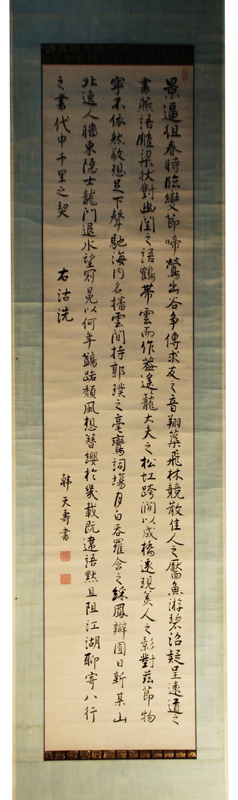 景逼徂春時臨變節啼鶯出谷爭傳求友之音翔蘂飛林競散佳人之靨魚游碧沼疑呈遠道之
書燕語雕梁狀對幽閨之語鶴帶雲而作蓋遙籠大夫之松虹跨澗以成橋遠現美人之影對茲節物
寧不依然敬想足下聲馳海內名播雲間持郭璞之毫鸞詞場月白吞羅含之綵鳳辯囿日新某山
北逸人牆東隱士龍門退水望冠冕以何年鷁路頹風想簪纓於幾載既違語默且阻江湖聊寄八行
之書代申千里之契
右沽洗
韓天壽書